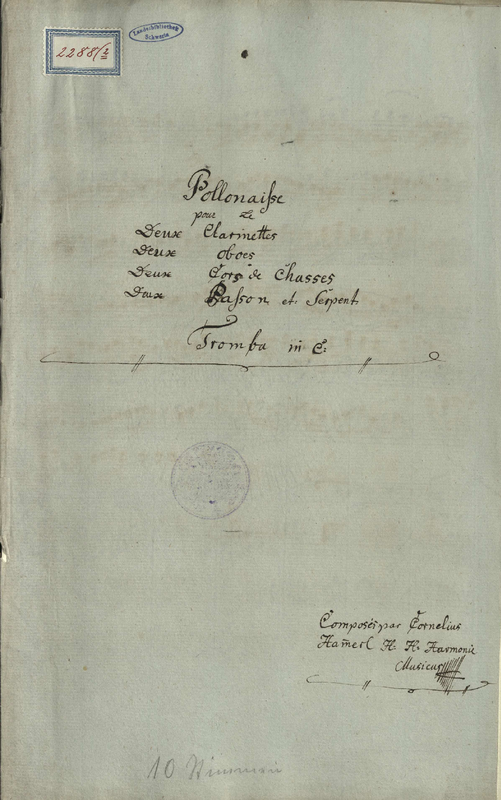 2288/2
Landesbibliothek
Schwerin
Pollonaisse
pour Le
Deux Clarinettes
Deux oboes
Deux Cors de Chasses
Deux Basson et Serpent
Tromba in C:
Composés par Cornelius
Ham̄erl H. H. Harmonie
Musicus
10 Stimmen